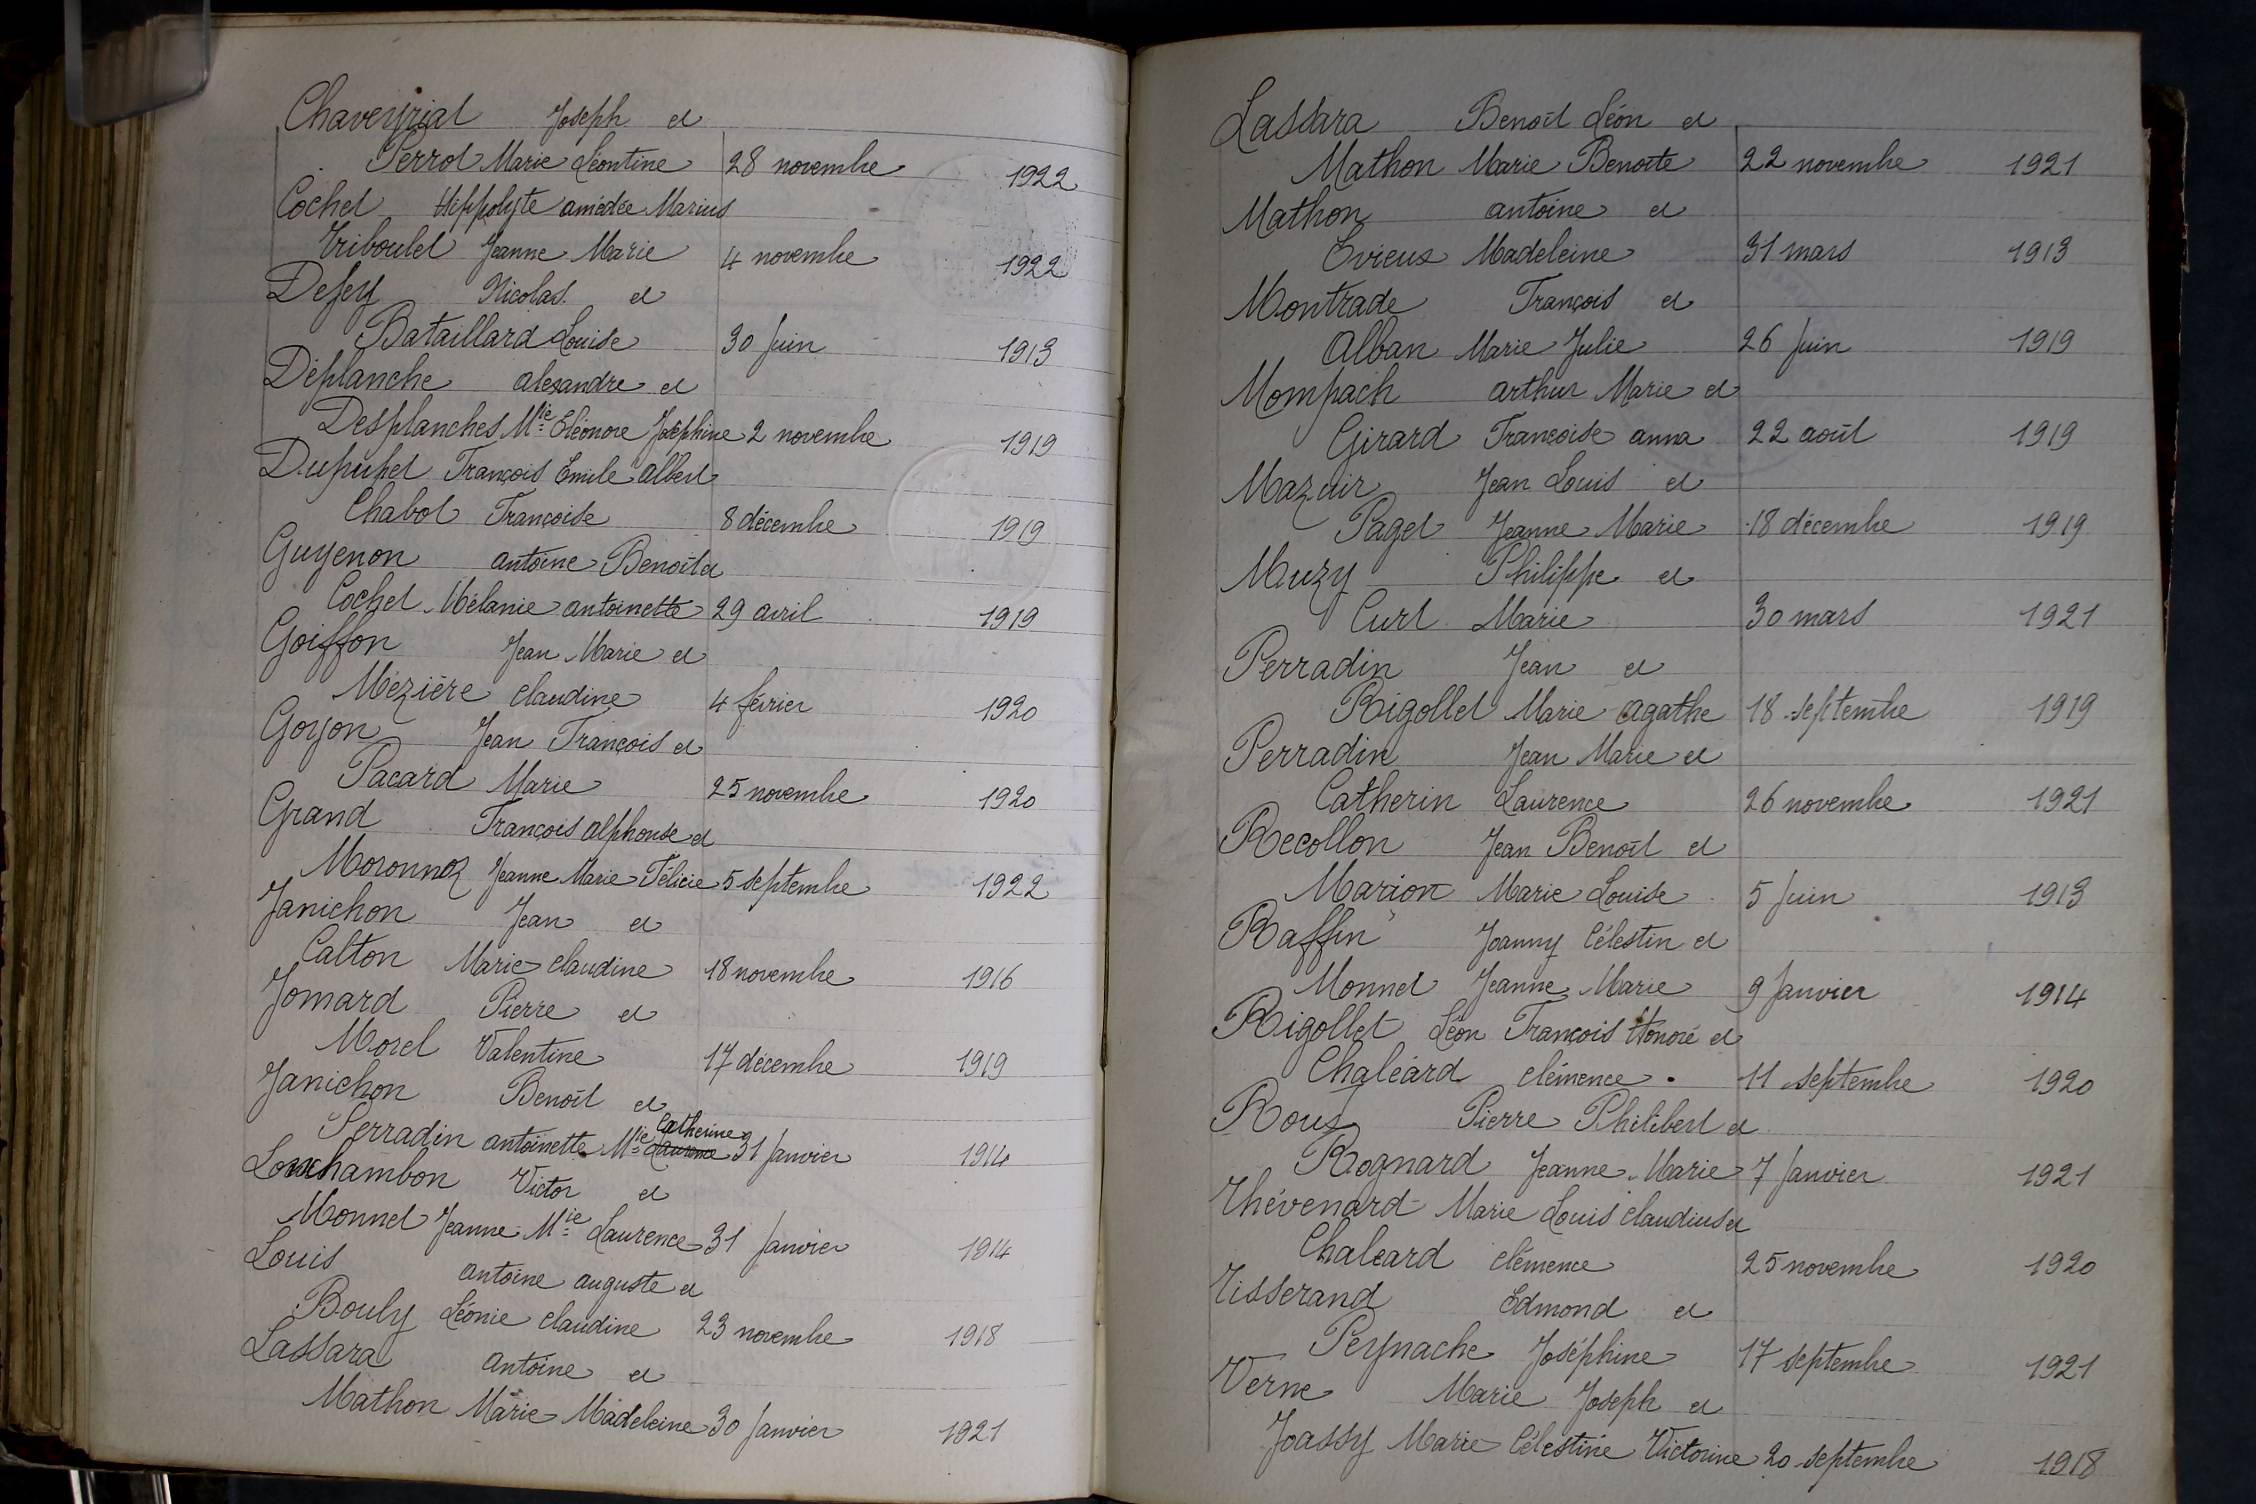 Chaveyriat Joseph et
Perrot Marie Léontine 28 novembre 1922
Cochet Hippolyte amédée Marius
Triboulet Jeanne Marie 4 novembre 1922
Defey Nicolas et
Bataillard Louise 30 Juin 1913
Déplanche alexandre et
Desplanches Mie Eléonore Joséphine 2 novembre 1919
Dupupet François Emile albert
Chabot Françoise 8 décembre 1919
Guyenon antoine Benoît et
Cochet Mélanie antoinette 29 avril 1919
Goiffon Jean Marie et
Mézière claudine 4 février 1920
Goyon Jean François et
Pacard Marie 25 novembre 1920
Grand François alphonse et
Moronnoz Jeanne Marie Félicie 5 septembre 1922
Janichon Jean et
Calton Marie claudine 18 novembre 1916
Jomard Pierre et
Morel Valentine 17 décembre 1919
Janichon Benoît et
Perradin antoinette Mie Laurence Catherine 31 Janvier 1914
Lonchambon Victor et
Monnet Jeanne Mie Laurence 31 Janvier 1914
Louis antoine auguste et
Bouly Léonie claudine 23 novembre 1918
Lassara antoine et
Mathon Marie Madeleine 30 Janvier 1921
Lassara Benoît Léon et
Mathon Marie Benoîte 22 novembre 1921
Mathon antoine et
Evieux Madeleine 31 mars 1913
Montrade François et
Alban Marie Julie 26 Juin 1919
Mompach arthur Marie et
Girard Françoise anna 22 août 1919
Mazuir Jean Louis et
Paget Jeanne Marie 18 décembre 1919
Muzy Philippe et
Curt Marie 30 mars 1921
Perradin Jean et
Rigollet Marie agathe 18 septembre 1919
Perradin Jean Marie et
Catherin Laurence 26 novembre 1921
Recollon Jean Benoît et
Marion Marie Louise 5 Juin 1913
Raffin Joanny Célestin et
Monnet Jeanne Marie 9 Janvier 1914
Rigollet Léon François Honoré et
Chaléard clémence 11 septembre 1920
Roux Pierre Philibert et
Rognard Jeanne Marie 7 Janvier 1921
Thévenard Marie Louis claudius et
Chaleard clémence 25 novembre 1920
Tisserand Edmond et
Peynache Joséphine 17 septembre 1921
Verne Marie Joseph et
Joassy Marie Célestine Victorine 20 septembre 1918